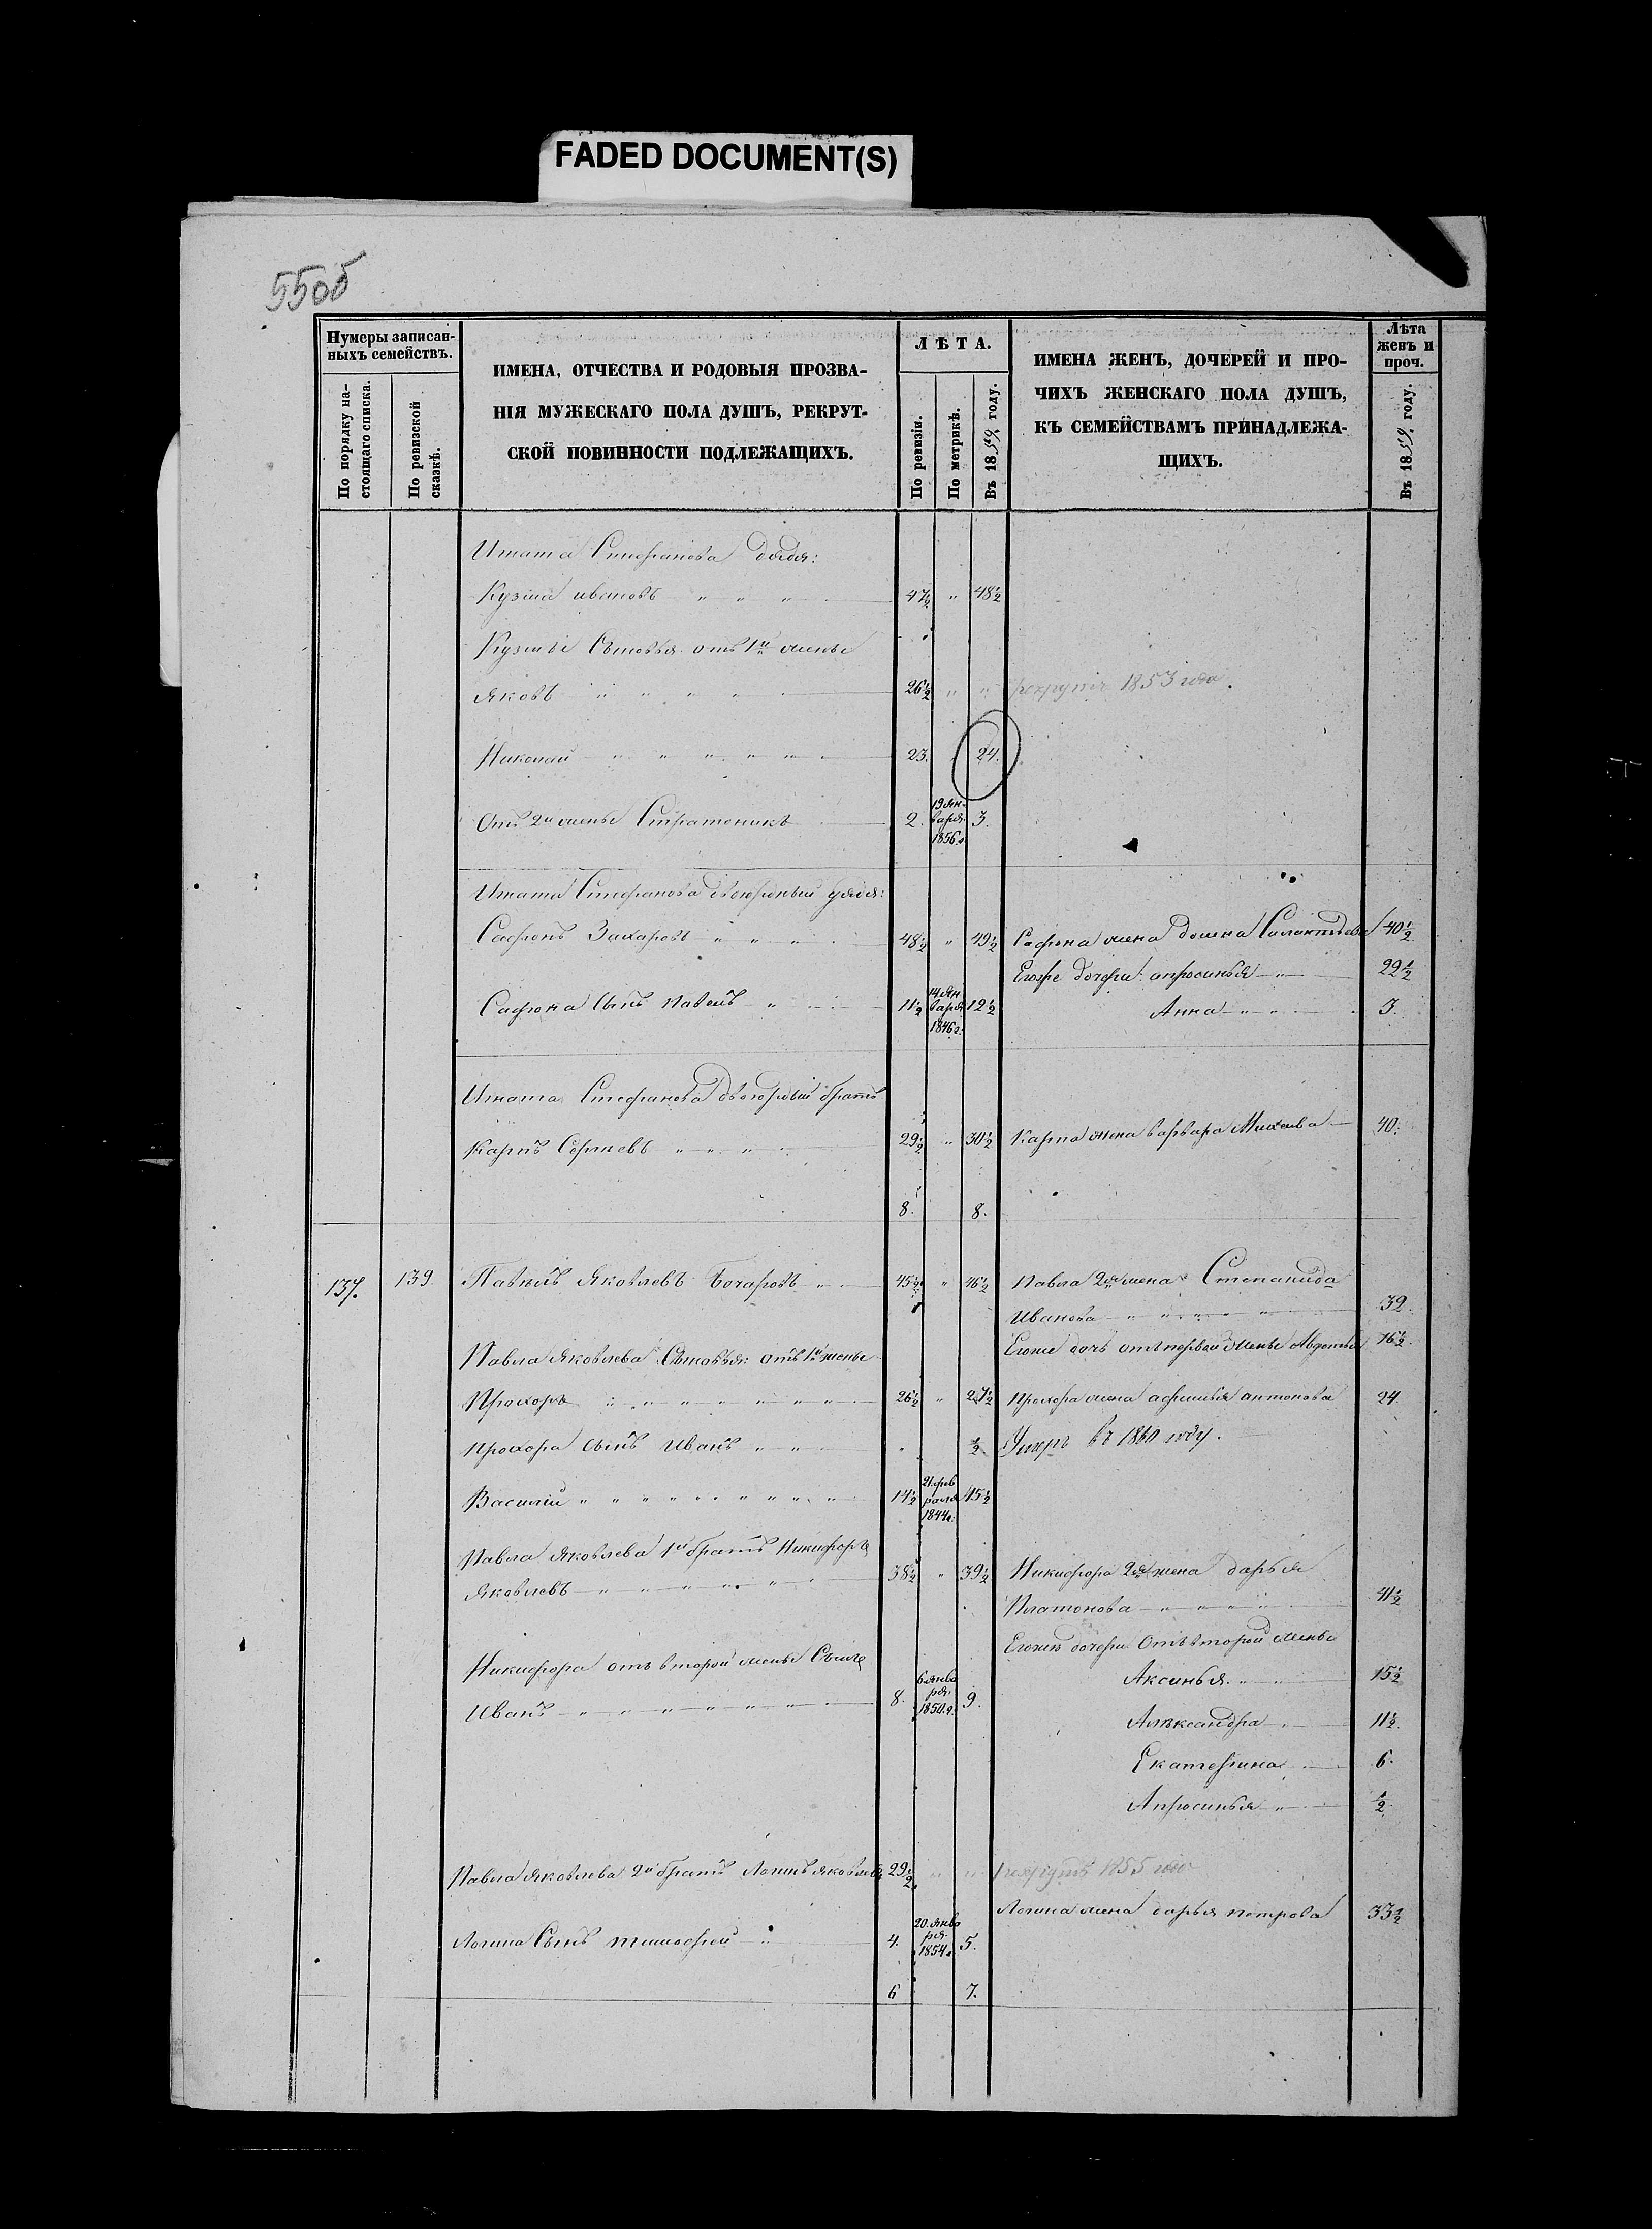 FADED DOCUMENT(S)
55об
Нумеры записан-
ныхъ семействъ.
По порядку на-
стоящаго списка.
По ревизской
сказкѣ.
ИМЕНА, ОТЧЕСТВА И РОДОВЫЯ ПРОЗВА-
НІЯ МУЖЕСКАГО ПОЛА ДУШЪ, РЕКРУТ-
СКОЙ ПОВИННОСТИ ПОДЛЕЖАЩИХЪ.
ЛѢТА.
По ревизіи.
По метрикѣ.
Въ 1859 году.
ИМЕНА ЖЕНЪ, ДОЧЕРЕЙ И ПРО-
ЧИХЪ ЖЕНСКАГО ПОЛА ДУШЪ,
КЪ СЕМЕЙСТВАМЪ ПРИНАДЛЕЖА-
ЩИХЪ.
Лѣта
женъ и
проч.
Въ 1859 году.
Стефанова дядя:
Кузма ивановъ " " " 47½ " 48½
Кузмы Сыновья отъ 1й жены
Яковъ " " " " " 26½ " " рекрутъ 1853 года.
Николай " " " " " 23. 24.
Отъ 2й жены Стратоникъ 2. 19 Ян-
варя
1856.г 3.
Стефанова двоюродный дядя:
Сафонъ Захаровъ " " " 48½ " 49½ Сафона жена Домна 40½
Егоже дочери: апросинья " 29½
Сафона Сынъ Павелъ " 11½ 14 Ян
варя
1846г. 12½ Анна " " 3.
Стефанова двоюродный братъ
Карпъ Сергеевъ " " " 29½ " 30½ Карпа жена варвара 40.
8. 8.
137. 139. Павелъ Яковлевъ Бочаровъ " 45½ " 46½ Павла 2я жена Степанида
Иванова " " " " " 39.
Павла Яковлева Сыновья: отъ 1й жены Егоже дочь отъ первой жены Авдотья 16½
Прохоръ " " " " " " 26½ " 27½ Прохора жена афимья антонова 24
Прохора сынъ Иванъ " " ½ Умеръ въ 1860 году.
Василій " " " " " " " " 14½ 21.фев
раля
1844г: 15½
Павла Яковлева 1й братъ Никифоръ
Яковлевъ " " " " " 38½ " 39½ Никифора 2я жена дарья
Платонова " " " " 41½
Егоже дочери отъ второй жены
Никифора отъ второй жены Сынъ Аксинья " " 15½
Иванъ " " " " " " 8. 6 янва
ря.
1850.г. 9. Александра " 11½
Екатерина 6.
Апросинья " ½
Павла Яковлева 2й братъ Логинъ Яковлевъ 29½ " " рекрутъ 1855 года
Логина жена дарья петрова 33½
Логина Сынъ тимофей " 4. 20.янв
ря.
1854г 5.
6 7.